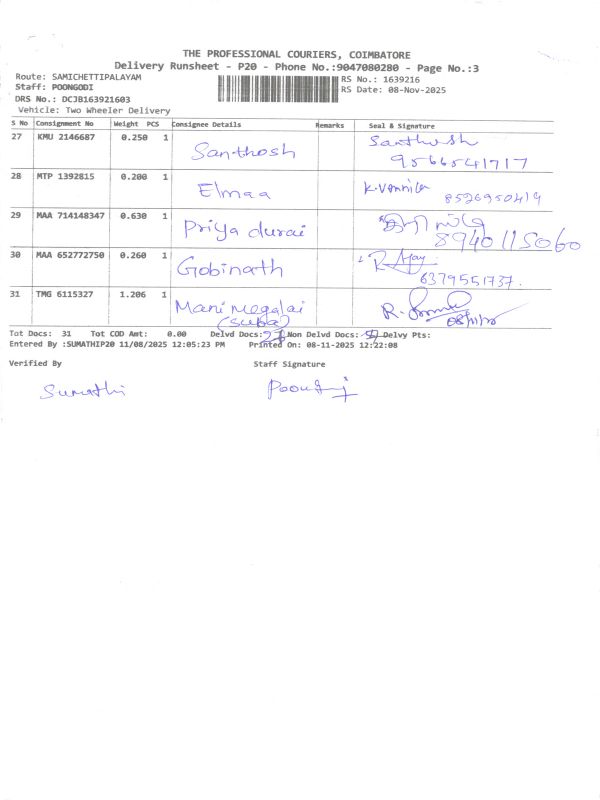 THE PROFESSIONAL COURIERS, COIMBATORE
Delivery Runsheet - P20 - Phone No.:9047080280 - Page No.:3
Route: SAMICHETTIPALAYAM
Staff: POONGODI
DRS No.: DCJB163921603
Vehicle: Two Wheeler Delivery
RS No.: 1639216
RS Date: 08-Nov-2025
S No Consignment No Weight PCS Consignee Details Remarks Seal & Signature
27 KMU 2146687 0.250 1 Santhosh Santhosh
9566541717
28 MTP 1392815 0.200 1 Elmaa K. Vennila
8526950419
29 MAA 714148347 0.630 1 Priya durai
8940115060
30 MAA 652772750 0.260 1 Gobinath R. Ajay
6379551737.
31 TMG 6115327 1.206 1 Manimegalai
(Suba) R.
08/11/25
Tot Docs: 31 Tot COD Amt: 0.00 Delvd Docs: 27 Non Delvd Docs: Delvy Pts:
Entered By :SUMATHIP20 11/08/2025 12:05:23 PM Printed On: 08-11-2025 12:22:08
Verified By Staff Signature
Sumathi